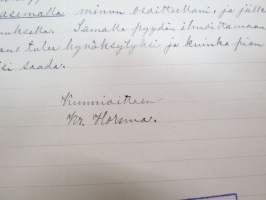 asemalla minun osoitteellani, ja jälki-
muksella. Samalla pyydän ilmoittamaan
tulee hyväksytyksi ja kuinka pian
si saada.
Kunnioittaen
Kr. Horsma.